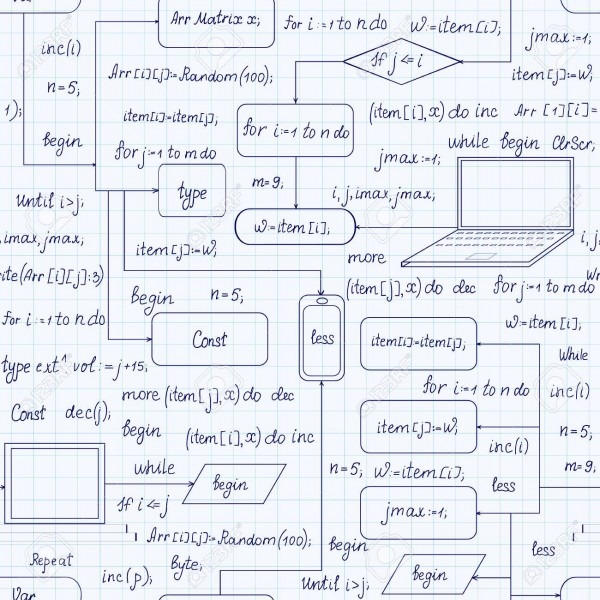 Var
Arr Matrix x;
for i:=1 to n do
w:=item[i];
jmax:=1;
inc(i)
if j<=i
n=5;
Arr[i][j]:=Random(100);
item[j]:=w,
1);
item[i]=item[j],
for i:=1 to n do
(item[i],x) do inc
Arr [1][i]=
begin
for j:=1 to m do
jmax:=1;
while begin ClrScr;
Until i>j;
type
m=9;
i, j, imax, jmax;
,imax,jmax;
w:=item[i];
item[j]:=w,
more
i, j,
ite(Arr[i][j]:3)
Begin
n=5;
(item[j],x) do dec
for j:=1 to m do
for i:=1 to n do
Const
less
item[i]=item[j];
w:=item[i],
while
type ext^1 vol:=j+15,
more (item[j],x) do dec
for i:=1 to n do
inc(i)
Const dec(j);
begin
(item[i],x) do inc
item[j]:=w,
n=5;
inc(i)
while
begin
n=5;
w:=item[i];
less
m=9;
if i<=j
jmax:=1;
Arr[i][j]:=Random(100);
begin
less
Repeat
inc(p);
Byte,
Until i>j,
begin
Var